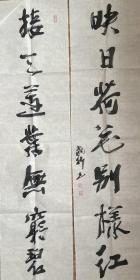 接天蓮葉無窮碧
映日荷花别樣紅